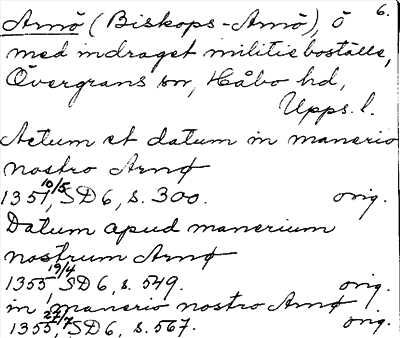 6.
Arnö (Biskops-Arnö), ö
med indraget militieboställe,
Övergrans sn, Håbo hd,
Upps. l.
Actum et datum in manerio
nostro Arnø
1351 10/5, SD 6, s. 300. orig.
Datum apud manerium
nostrum Arnø
1355 19/4, SD 6, s. 549. orig.
in manerio nostro Arnø
1355 27/7, SD 6, s. 567. orig.